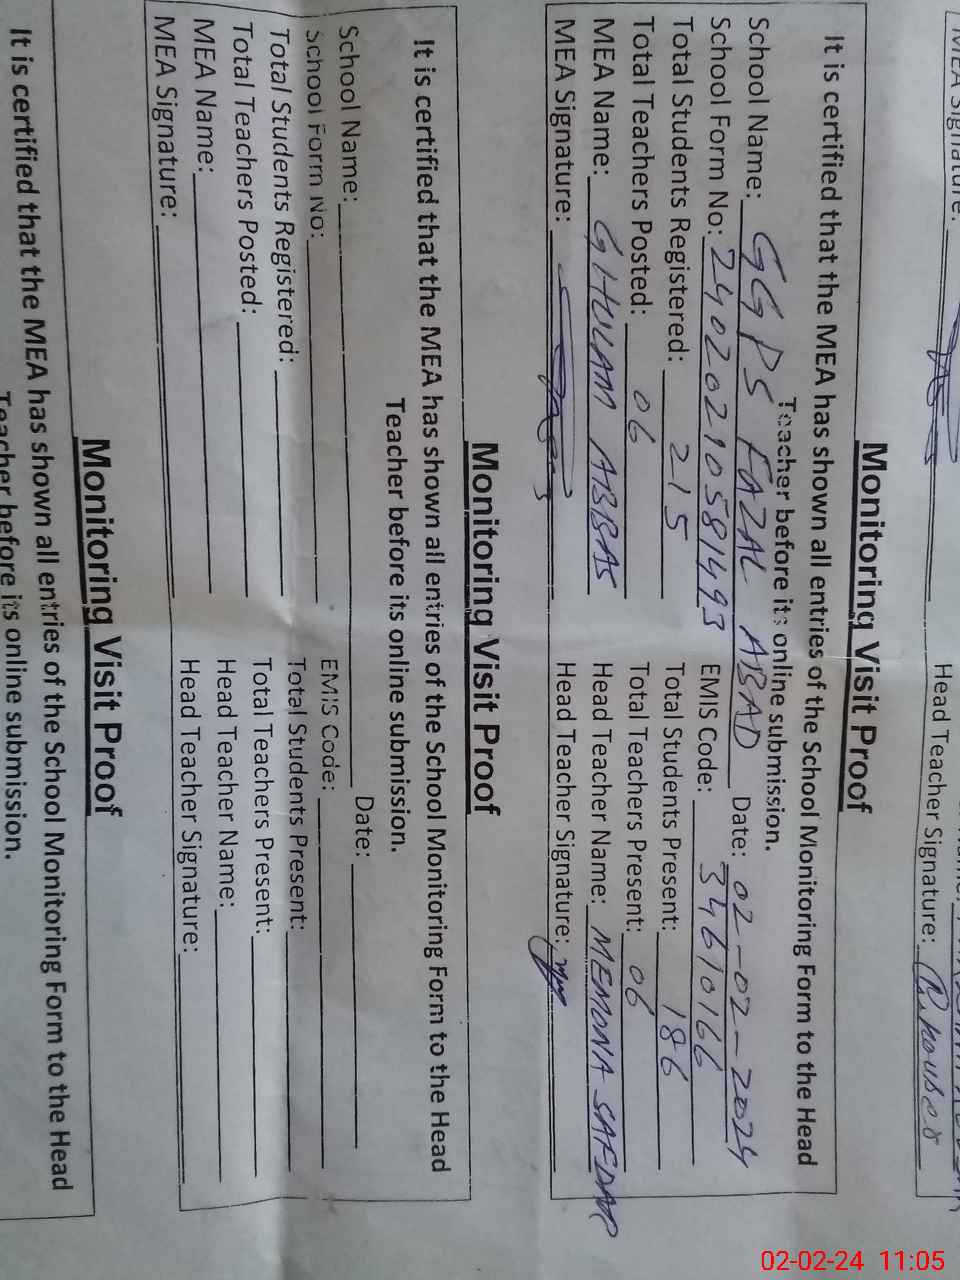 MEA Signature:
Head Teacher Signature:
Monitoring Visit Proof
It is certified that the MEA has shown all entries of the School Monitoring Form to the Head
Teacher before its online submission.
School Name: GGPS FAZAL ABAD Date: 02-02-2024
School Form No: 24020210581493 EMIS Code: 34610166
Total Students Registered: 215 Total Students Present: 186
Total Teachers Posted: 06 Total Teachers Present: 06
MEA Name: GHULAM ABBAS Head Teacher Name: MEMONA SAFDAR
MEA Signature: Head Teacher Signature:
Monitoring Visit Proof
It is certified that the MEA has shown all entries of the School Monitoring Form to the Head
Teacher before its online submission.
School Name: Date:
School Form No: EMIS Code:
Total Students Registered: Total Students Present:
Total Teachers Posted: Total Teachers Present:
MEA Name: Head Teacher Name:
MEA Signature: Head Teacher Signature:
Monitoring Visit Proof
It is certified that the MEA has shown all entries of the School Monitoring Form to the Head
Teacher before its online submission.
02-02-24 11:05